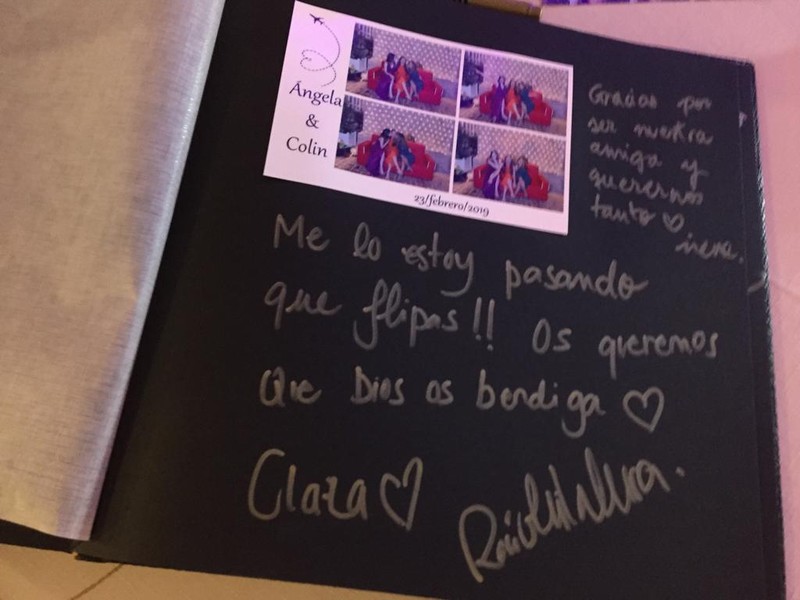 Ángela
&
Colin
23/febrero/2019
Gracias por
ser nuestra
amiga y
querernos
tanto ♡
Me lo estoy pasando
que flipas!! Os queremos
Que Dios os bendiga ♡
Clara ♡